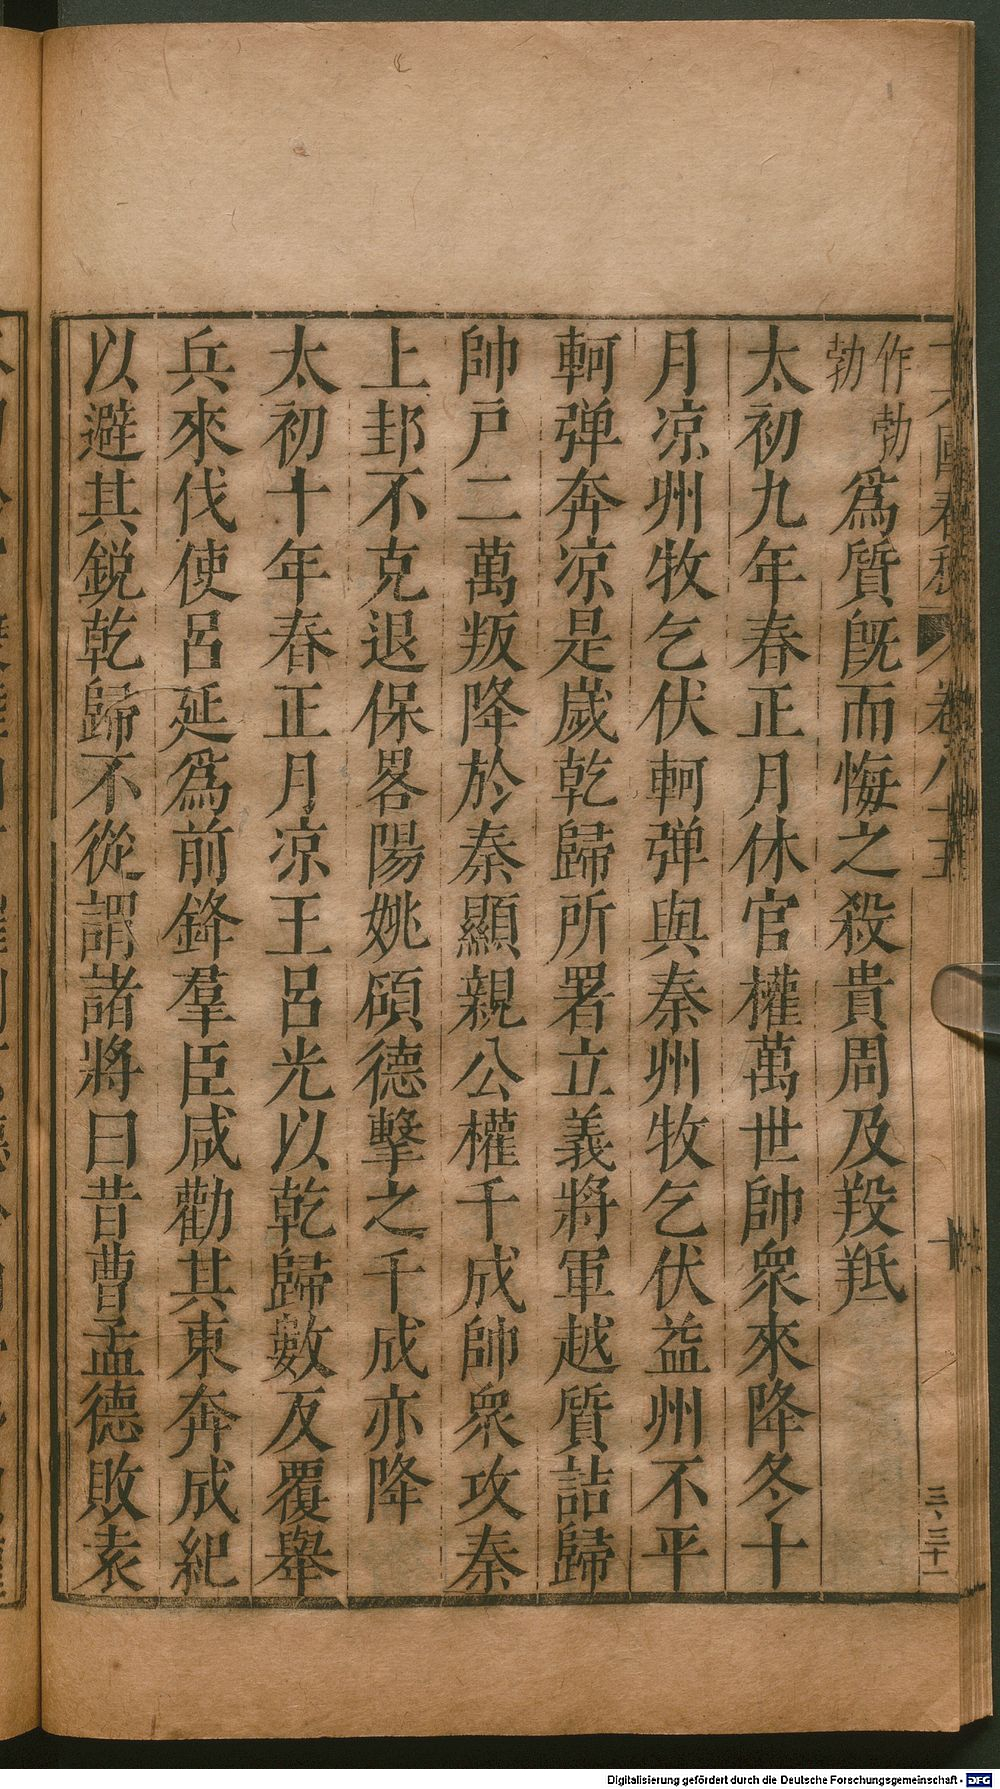 作勃
勃
爲質旣而悔之殺貴周及羖羝
太初九年春正月休官權萬世帥衆來降冬十
月凉州牧乞伏軻弹與秦州牧乞伏益州不平
軻弹奔凉是嵗乾歸所署立義將軍越質詰歸
帥戸二萬叛降於秦顯親公權千成帥衆攻秦
上邽不克退保畧陽姚碩德擊之千成亦降
太初十年春正月凉王呂光以乾歸數反覆舉
兵來伐使呂延爲前鋒羣臣咸勸其東奔成紀
以避其鋭乾歸不從謂諸將曰昔曹孟德敗袁
三、三十一
Digitalisierung gefördert durch die Deutsche Forschungsgemeinschaft - DFG